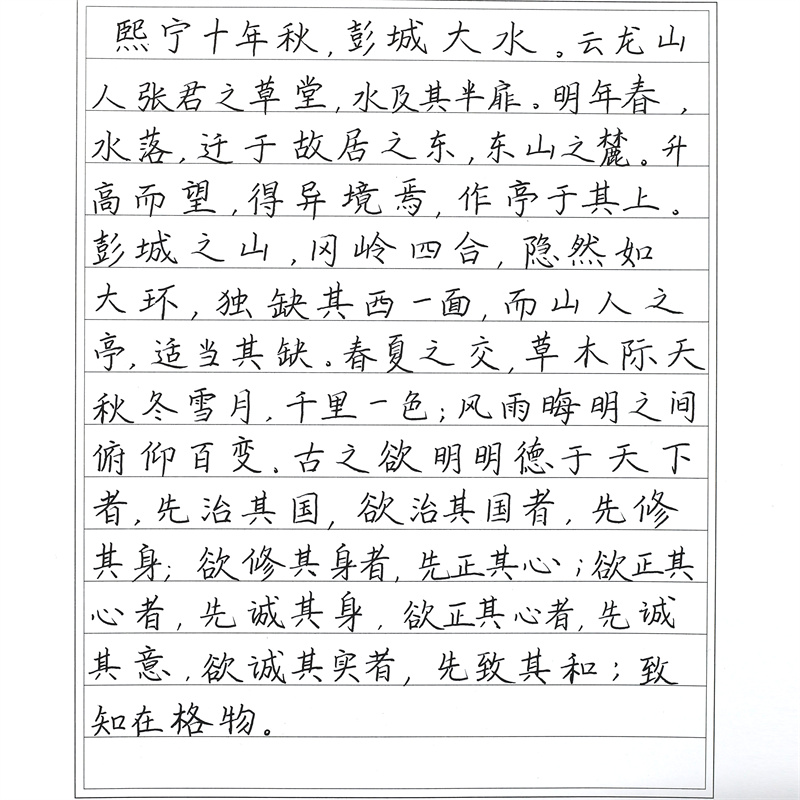 熙宁十年秋,彭城大水。云龙山
人张君之草堂,水及其半扉。明年春,
水落,迁于故居之东,东山之麓。升
高而望,得异境焉,作亭于其上。
彭城之山,冈岭四合,隐然如
大环,独缺其西一面,而山人之
亭,适当其缺。春夏之交,草木际天
秋冬雪月,千里一色;风雨晦明之间
俯仰百变。古之欲明明德于天下
者,先治其国,欲治其国者,先修
其身;欲修其身者,先正其心;欲正其
心者,先诚其身,欲正其心者,先诚
其意,欲诚其实者,先致其和;致
知在格物。